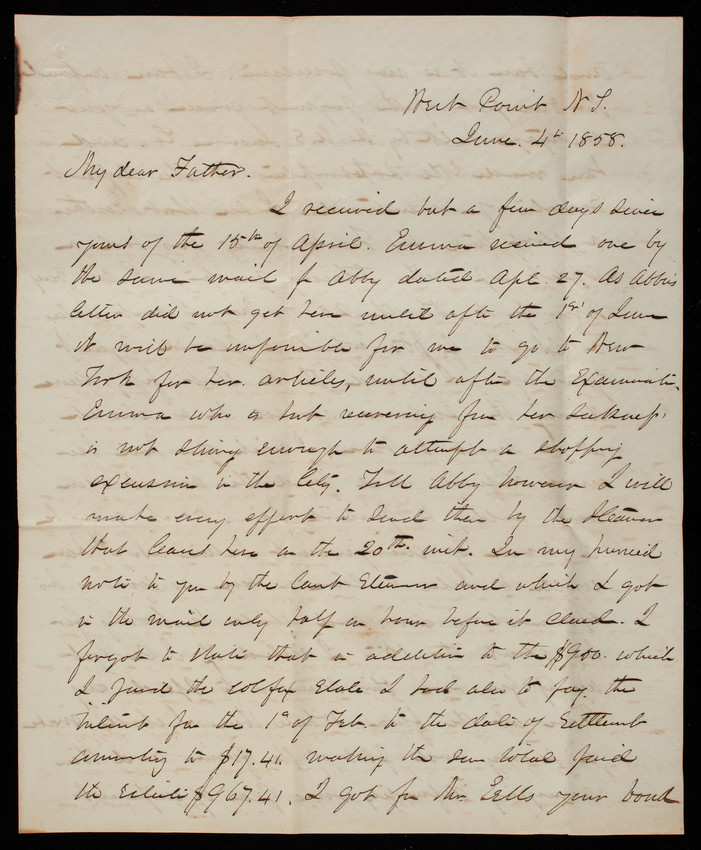 West Point N.Y.
June. 4th 1858.
My dear Father.
I received but a few days since
yours of the 15th of April. Emma received one by
the same mail fr Abby dated Apl. 27. As Abbies
letter did not get here until after the 1st of June
it will be impossible for me to go to New
York for her articles, until after the Examinatin.
Emma who is but recovering from her sickness
is not strong enough to attempt a shopping
excursion to the City. Tell Abby however I will
make every effort to send them by the Steamer
that leaves here on the 20th. inst. In my hurried
note to you by the last Steamer and which I got
in the mail only half an hour before it closed. I
forgot to state that in addition to the $950. which
I paid the Colfax Estate I had also to pay the
Interest for the 1st of Feb. to the date of Settlement
amounting to $17.41. making the sum total paid
the Estate $967.41. I got fr Mr Eells your bond